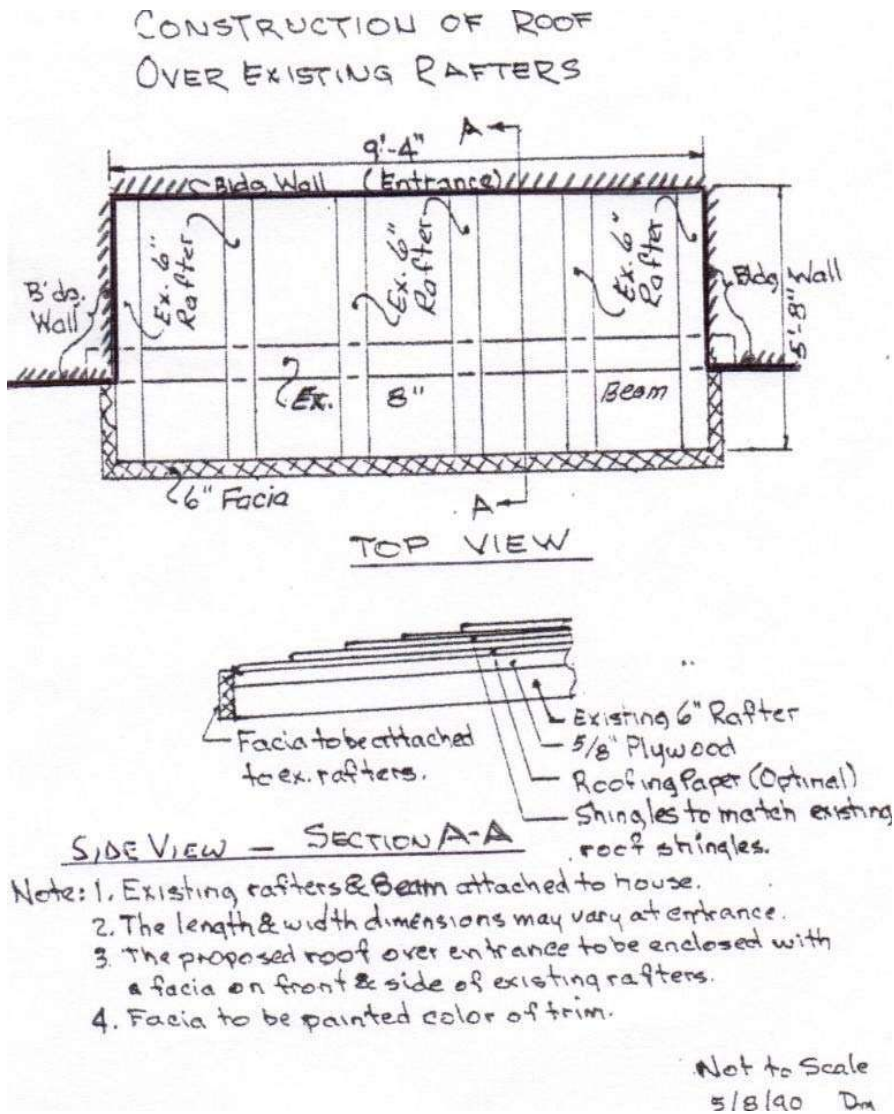 CONSTRUCTION OF ROOF
OVER EXISTING RAFTERS
A
9'-4"
Bldg Wall (Entrance)
Ex. 6"
Rafter
Ex. 6"
Rafter
Ex. 6"
Rafter
B'dg.
Wall
Bldg Wall
5'-8"
Ex. 8" Beam
6" Facia
A
TOP VIEW
Existing 6" Rafter
5/8" Plywood
Roofing Paper (Optinal)
Shingles to match existing
roof shingles.
Facia to be attached
to ex. rafters.
SIDE VIEW - SECTION A-A
Note: 1. Existing rafters & Beam attached to house.
2. The length & width dimensions may vary at entrance.
3. The proposed roof over entrance to be enclosed with
a facia on front & side of existing rafters.
4. Facia to be painted color of trim.
Not to Scale
5/8/90